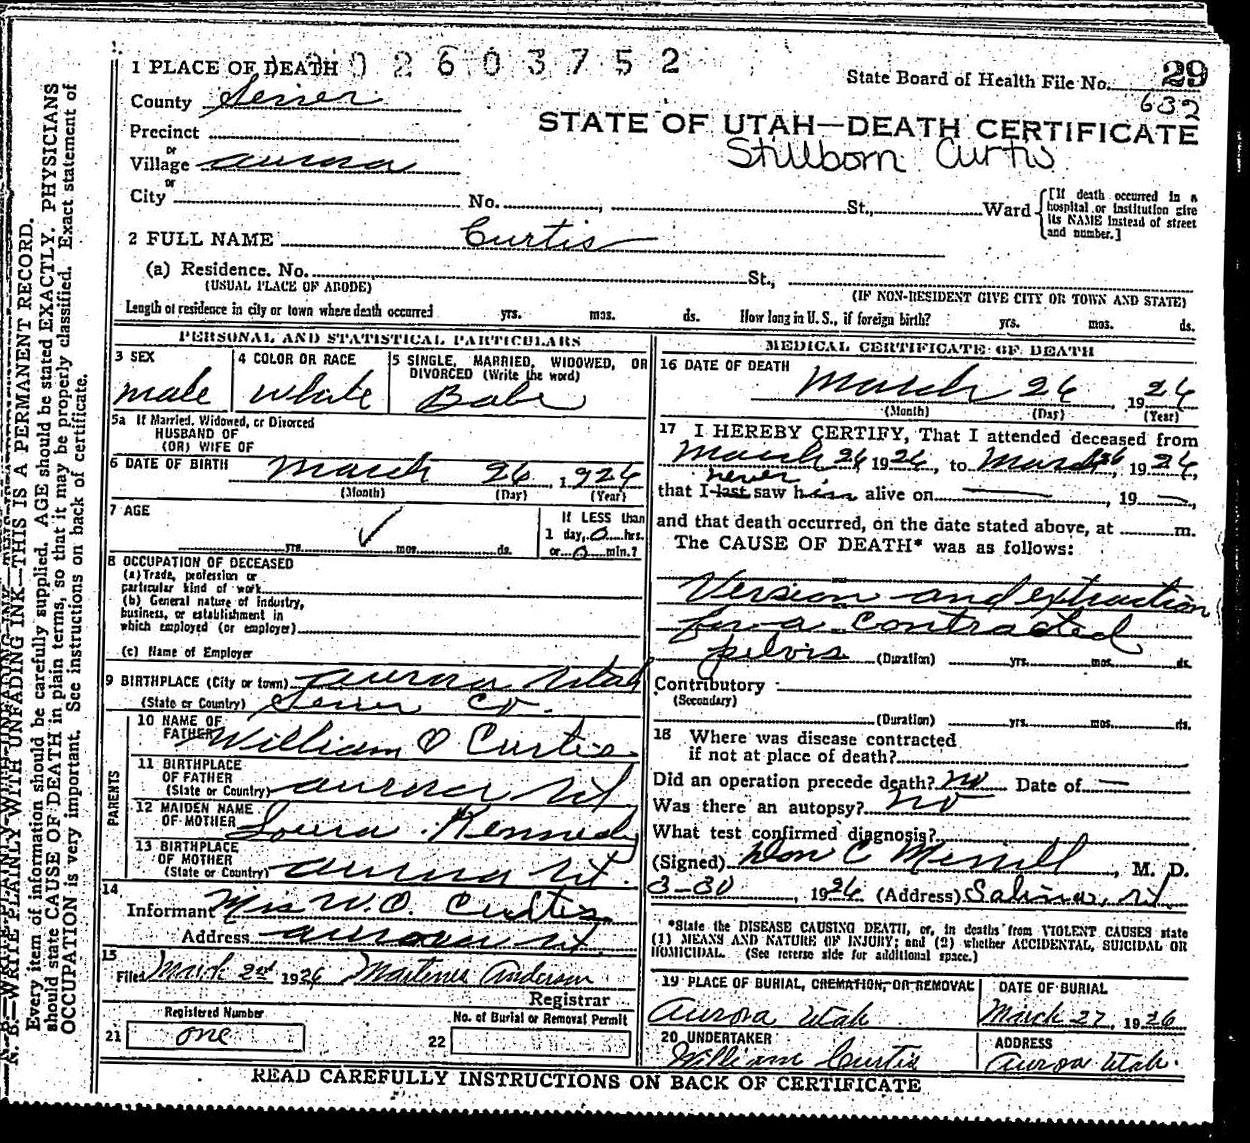 1 PLACE OF DEATH 02603752
State Board of Health File No. 29
632
County Sevier
STATE OF UTAH—DEATH CERTIFICATE
Stillborn Curtis
Precinct
or
Village Aurora
or
City No. St., Ward
[If death occurred in a hospital or institution give its NAME instead of street and number.]
2 FULL NAME Curtis
(a) Residence. No. St.,
(USUAL PLACE OF ABODE) (IF NON-RESIDENT GIVE CITY OR TOWN AND STATE)
Length of residence in city or town where death occurred yrs. mos. ds. How long in U. S., if foreign birth? yrs. mos. ds.
PERSONAL AND STATISTICAL PARTICULARS
3 SEX
male
4 COLOR OR RACE
white
5 SINGLE, MARRIED, WIDOWED, OR
DIVORCED (Write the word)
Babe
5a If Married, Widowed, or Divorced
HUSBAND OF
(OR) WIFE OF
6 DATE OF BIRTH March 26, 1926
(Month) (Day) (Year)
7 AGE ✓
yrs. mos. ds.
If LESS than
1 day, 0 hrs.
or 0 min.?
8 OCCUPATION OF DECEASED
(a) Trade, profession or
particular kind of work
(b) General nature of industry,
business, or establishment in
which employed (or employer)
(c) Name of Employer
9 BIRTHPLACE (City or town) Aurora Utah
(State or Country) Sevier Co.
PARENTS
10 NAME OF
FATHER William O Curtis
11 BIRTHPLACE
OF FATHER
(State or Country) Aurora Ut
12 MAIDEN NAME
OF MOTHER Loura Kennedy
13 BIRTHPLACE
OF MOTHER
(State or Country) Aurora Ut.
14
Informant Mrs W. O. Curtis
Address Aurora Ut.
15
Filed March 2nd 1926 Anderson
Registrar
Registered Number
21 one
No. of Burial or Removal Permit
22
MEDICAL CERTIFICATE OF DEATH
16 DATE OF DEATH
March 26, 1926
(Month) (Day) (Year)
17 I HEREBY CERTIFY, That I attended deceased from
March 26 1926, to March 26, 1926,
never
that I last saw him alive on — , 19 —,
and that death occurred, on the date stated above, at m.
The CAUSE OF DEATH* was as follows:
Version and extraction
for a contracted
pelvis (Duration) yrs. mos. ds.
Contributory
(Secondary)
(Duration) yrs. mos. ds.
18 Where was disease contracted
if not at place of death?
Did an operation precede death? no Date of —
Was there an autopsy? no
What test confirmed diagnosis?
(Signed) Don C Merrill, M. D.
3-30, 1926 (Address) Salina, Ut.
*State the DISEASE CAUSING DEATH, or, in deaths from VIOLENT CAUSES state
(1) MEANS AND NATURE OF INJURY; and (2) whether ACCIDENTAL, SUICIDAL OR
HOMICIDAL. (See reverse side for additional space.)
19 PLACE OF BURIAL, CREMATION, OR REMOVAL
Aurora Utah
DATE OF BURIAL
March 27, 1926
20 UNDERTAKER
William Curtis
ADDRESS
Aurora Utah.
READ CAREFULLY INSTRUCTIONS ON BACK OF CERTIFICATE
N. B.—WRITE PLAINLY WITH UNFADING INK—THIS IS A PERMANENT RECORD.
Every item of information should be carefully supplied. AGE should be stated EXACTLY. PHYSICIANS
should state CAUSE OF DEATH in plain terms, so that it may be properly classified. Exact statement of
OCCUPATION is very important. See instructions on back of certificate.